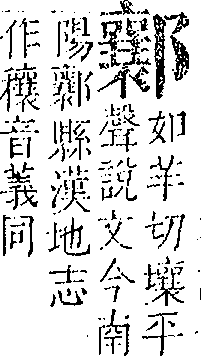 鄴如羊切壤平
聲說文今南
陽鄴縣漢地志
作穰音義同